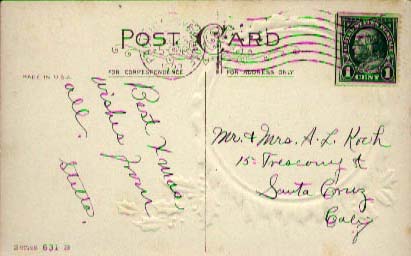 POST CARD
FOR CORRESPONDENCE
FOR ADDRESS ONLY
MADE IN U.S.A.
1 CENT 1
Best Xmas
wishes from
all.
Stella.
Mr. & Mrs. A. L. Koch
15
Santa Cruz
Calif
SERIES 631 B